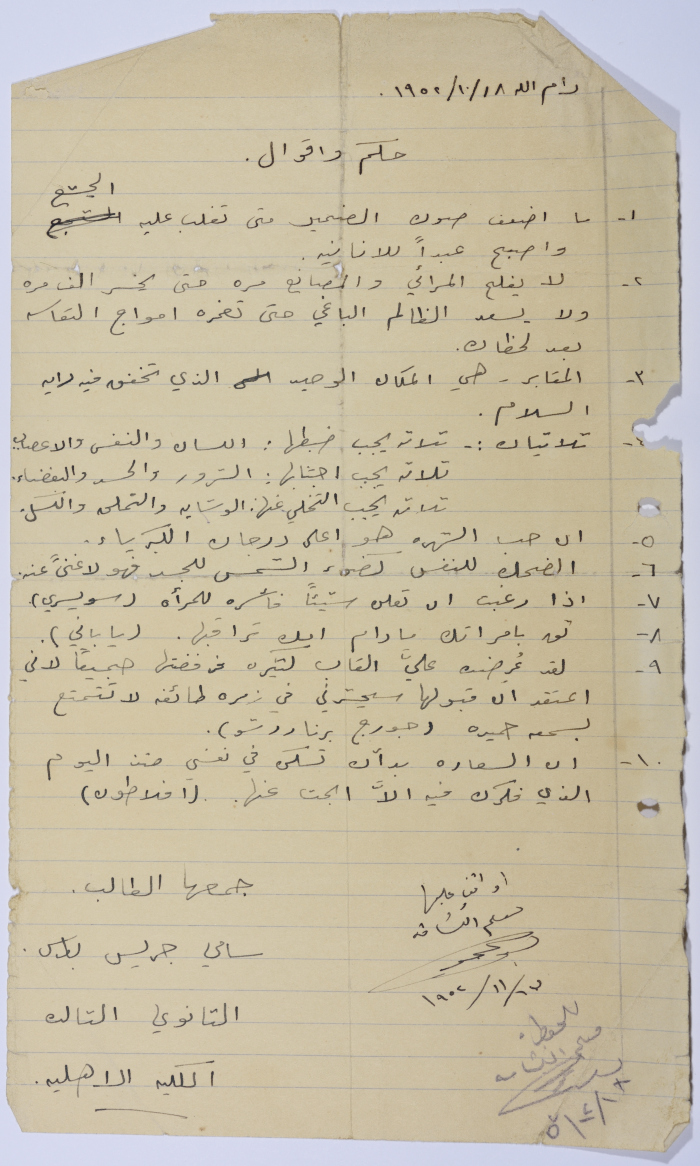 رام الله ١٩٥٢/١٠/١٨.
حكم واقوال.
المجتمع
١- ما اضعف صوت الضمير متى تغلب عليه
واصبح عبداً للانانيه.
٢- لا يفلح المرائي والمصانع مره حتى يخسر الف مره
ولا يسعد الظالم الباغي حتى تغمره امواج التعاسه
بعد لحظات.
٣- المقابر - هي المكان الوحيد الذي تخفق فيه رايه
السلام.
ثلاثيات :- ثلاثه يجب ضبطها: اللسان والنفس والاعصاب
ثلاثه يجب اجتنابها: الشرور والحسد والبغضاء.
ثلاثه يجب التخلي عنها: الوشايه والتملق والكسل.
٥- ان حب الشهره هو اعلى درجات الكبرياء.
٦- الضحك للنفس كضوء الشمس للجسد فهو لا غنىً عنه.
٧- اذا رغبت ان تعلن شيئاً فأسره للمرأه (سويسري)
٨- ثق بامرأتك مادام امك تراقبها. (ياباني).
٩- لقد عُرضت عليَّ القاب كثيره فرفضتها جميعًا لاني
اعتقد ان قبولها سيحشرني في زمره طائفه لا تتمتع
بسمعه حميده (جورج برناردشو).
١٠- ان السعاده بدأت تسكن في نفسي منذ اليوم
الذي فكرت فيه الاَّ ابحث عنها. (افلاطون)
جمعها الطالب.
سامي جريس بطرس.
الثانوي الثالث
الكليه الاهليه.
اوافق عليها
معلم الكشافه
١٩٥٢/١١/